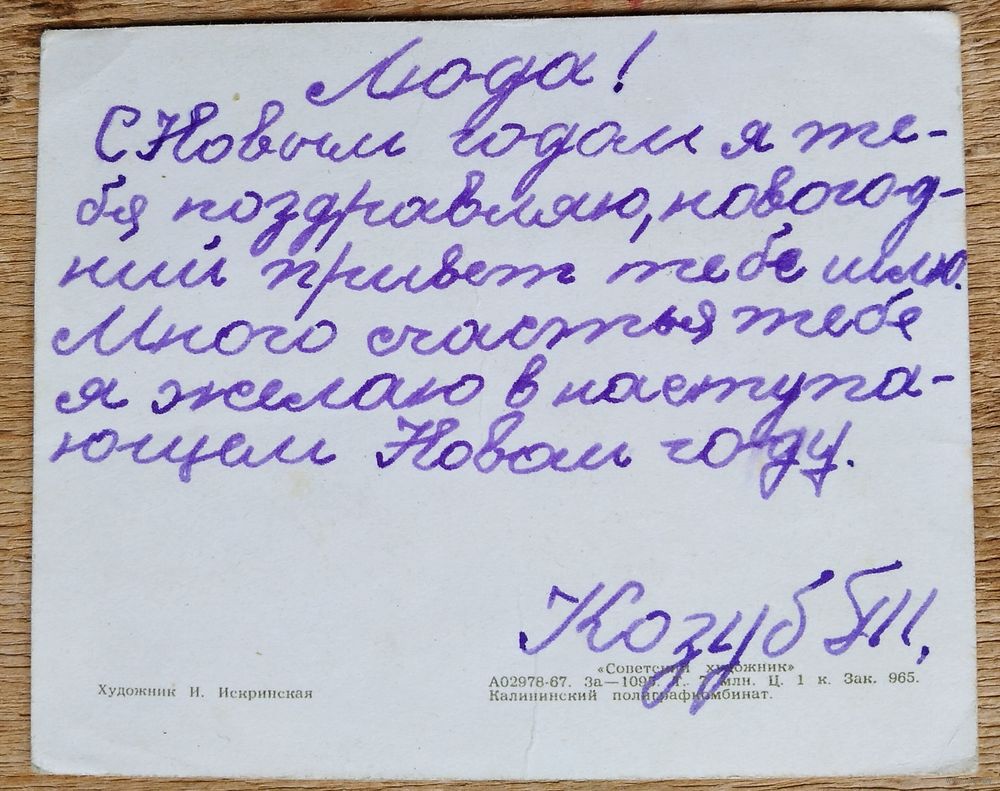 Люда!
С Новым годом я те-
бя поздравляю, новогод-
ний привет тебе шлю.
Много счастья тебе
я желаю в наступа-
ющем Новом году.
Козуб Т.
«Советский художник»
Художник И. Искринская
А02978-67. За—1095. Т. 7 млн. Ц. 1 к. Зак. 965.
Калининский полиграфкомбинат.